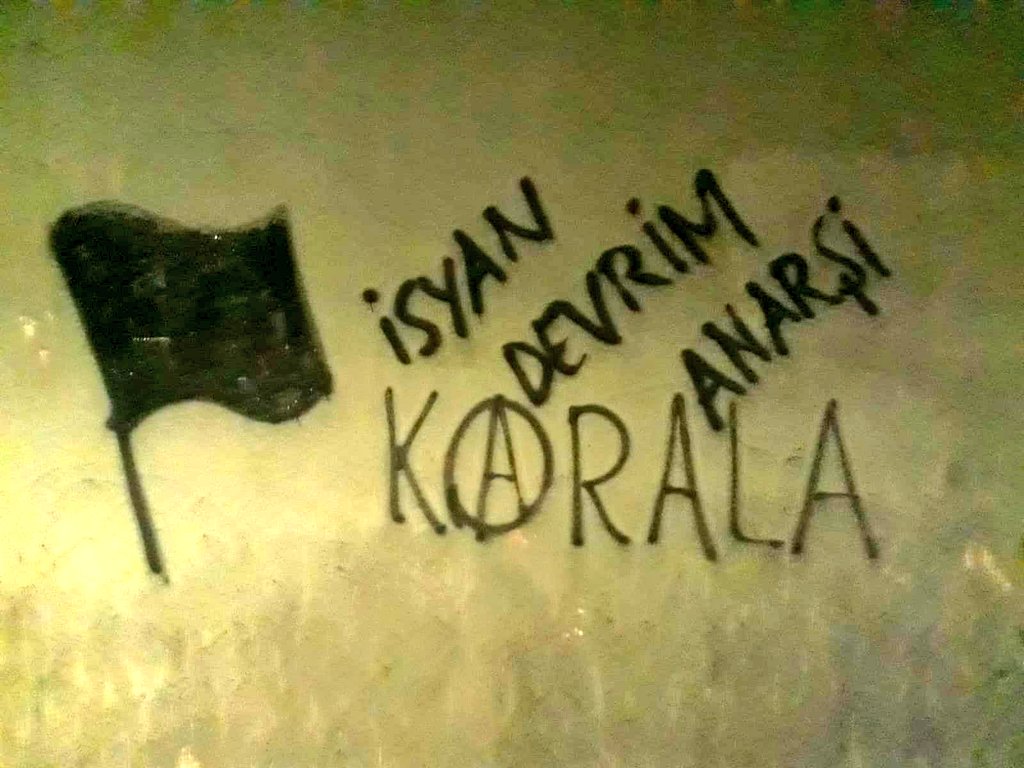 iSYAN
DEVRİM
ANARŞİ
KARALA